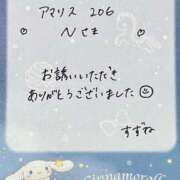 アマリス 206
Nさま
お誘いいただき
ありがとうございました☺
すずね
cinnamoroll